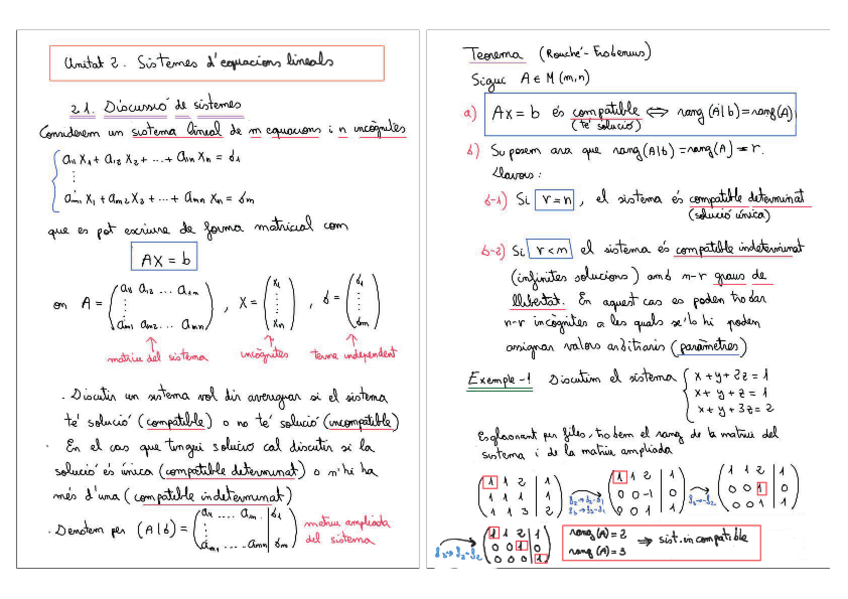 Unitat 2. Sistemes d'equacions lineals
2.1. Discussió de sistemes
Considerem un sistema lineal de m equacions i n incògnites
a11 x1 + a12 x2 + ... + a1n xn = b1
⋮
am1 x1 + am2 x2 + ... + amn xn = bm
que es pot escriure de forma matricial com
AX = b
on A = (a11 a12 ... a1n ⋮ am1 am2 ... amn), X = (x1 ⋮ xn), b = (b1 ⋮ bm)
matriu del sistema incògnites terme independent
. Discutir un sistema vol dir averiguar si el sistema
té solució (compatible) o no té solució (incompatible)
. En el cas que tingui solució cal discutir si la
solució és única (compatible determinat) o n'hi ha
més d'una (compatible indeterminat)
. Denotem per (A|b) = (a11 .... a1n | b1 ⋮ am1 .... amn | bm) matriu ampliada
del sistema
Teorema (Rouché-Frobenius)
Sigui A ∈ M(m,n)
a) AX = b és compatible ⟺ rang(A|b) = rang(A)
(té solució)
b) Suposem ara que rang(A|b) = rang(A) = r.
Llavors:
b-1) Si r = n, el sistema és compatible determinat
(solució única)
b-2) Si r < n el sistema és compatible indeterminat
(infinites solucions) amb n-r graus de
llibertat. En aquest cas es poden trobar
n-r incògnites a les quals se'lo hi poden
assignar valors arbitraris (paràmetres)
Exemple-1 Discutim el sistema
x + y + 2z = 1
x + y + z = 1
x + y + 3z = 2
Esglaonant per files, trobem el rang de la matriu del
sistema i de la matriu ampliada
(1 1 2 | 1
1 1 1 | 1
1 1 3 | 2)
f2→f2-f1
f3→f3-f1
(1 1 2 | 1
0 0 -1 | 0
0 0 1 | 1)
f2→-f2
(1 1 2 | 1
0 0 1 | 0
0 0 1 | 1)
f3→f3-f2
(1 1 2 | 1
0 0 1 | 0
0 0 0 | 1)
rang(A) = 2
rang(A) = 3
⇒ sist. incompatible